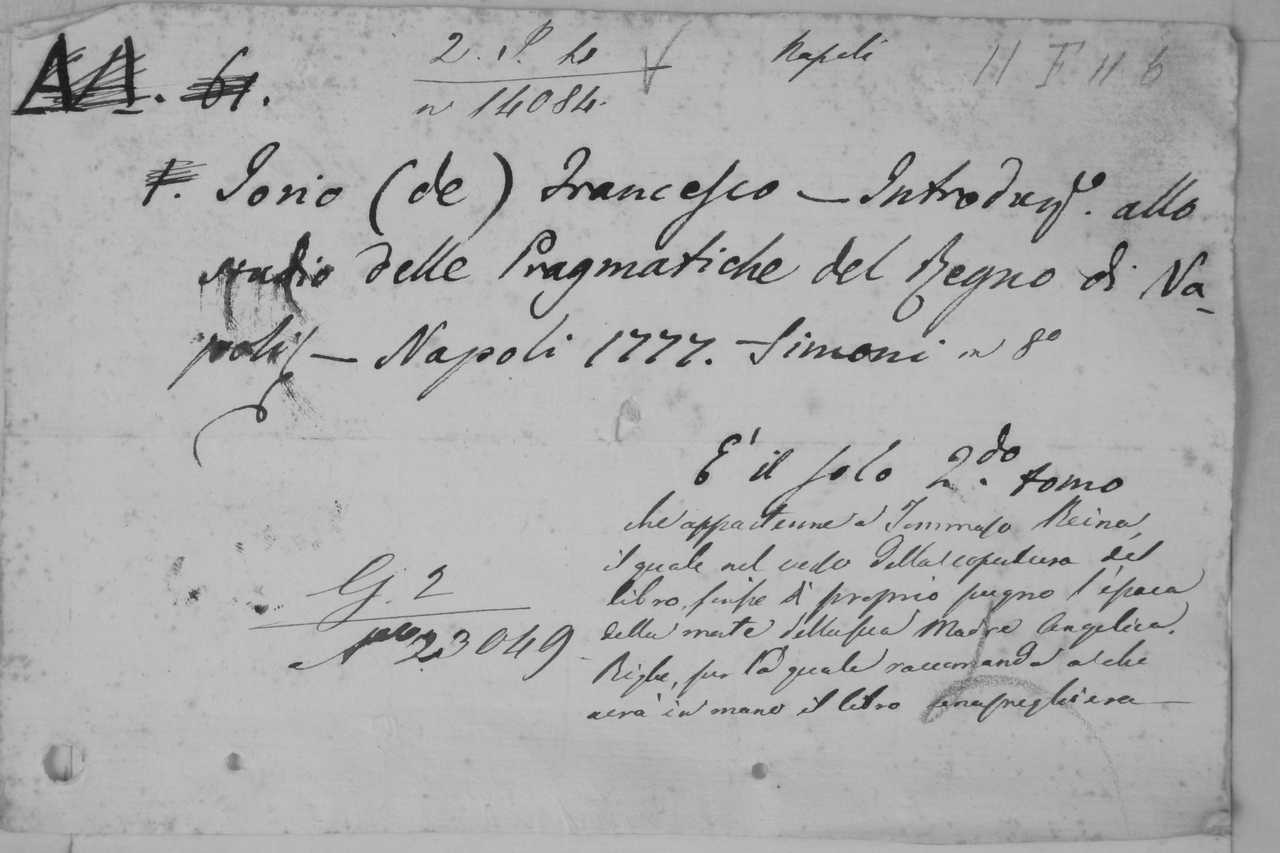 A A. 61.
2. P. 4
Napoli
11 F 11 6
n 14084.
F. Iorio (de) Francesco — Introduze. allo
studio delle Pragmatiche del Regno di Na-
poli — Napoli 1777. Simoni in 8º
E' il solo 2.do tomo
che appartenne a Tommaso Reina,
il quale nel verso della copertura del
libro scrisse di proprio pugno l'epoca
della morte della sua Madre Angelica
Righe, per la quale raccomanda a che
avrà in mano il libro una preghiera —
G. 2
Nro 23049